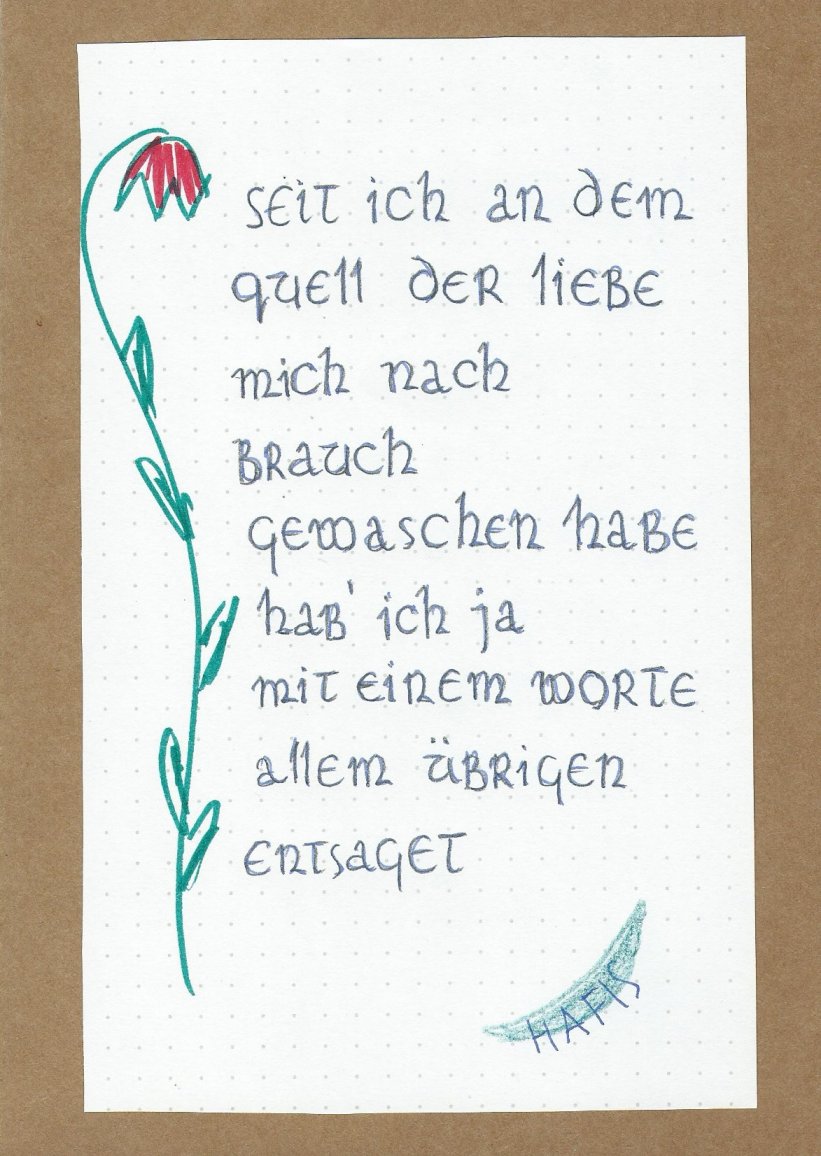 seit ich an dem
quell der liebe
mich nach
brauch
gewaschen habe
hab' ich ja
mit einem worte
allem übrigen
entsaget
HAFIS